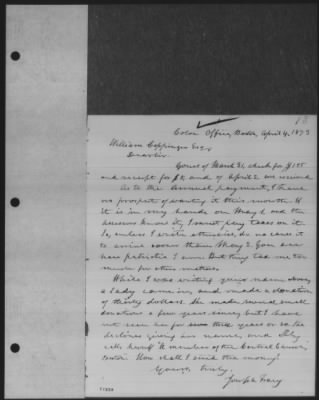 18
Colon. Office, Boston, April 4, 1873
William Coppinger Esq.
Dear Sir
Yours of March 31, check for $125
and receipt for $ and of April 2 are received
As to the annual payment, I have
no prospect of wanting it this month. If
it is in my hands on May 1 and the
assessors know it, I must pay taxes on it
So, unless I write otherwise, do no cause it
to arrive sooner than May 2. You are
more patriotic I am. But they tax me too
much for other matters.
While I was writing your name above,
a lady came in, and made a donation
of thirty dollars. She made several small
donations a few years since, but I have
not seen her for two three years or so. She
declines giving her name, and
calls herself "A member of the Central Church,
Boston. How shall I send the money?
Yours truly,
Joseph Tracy